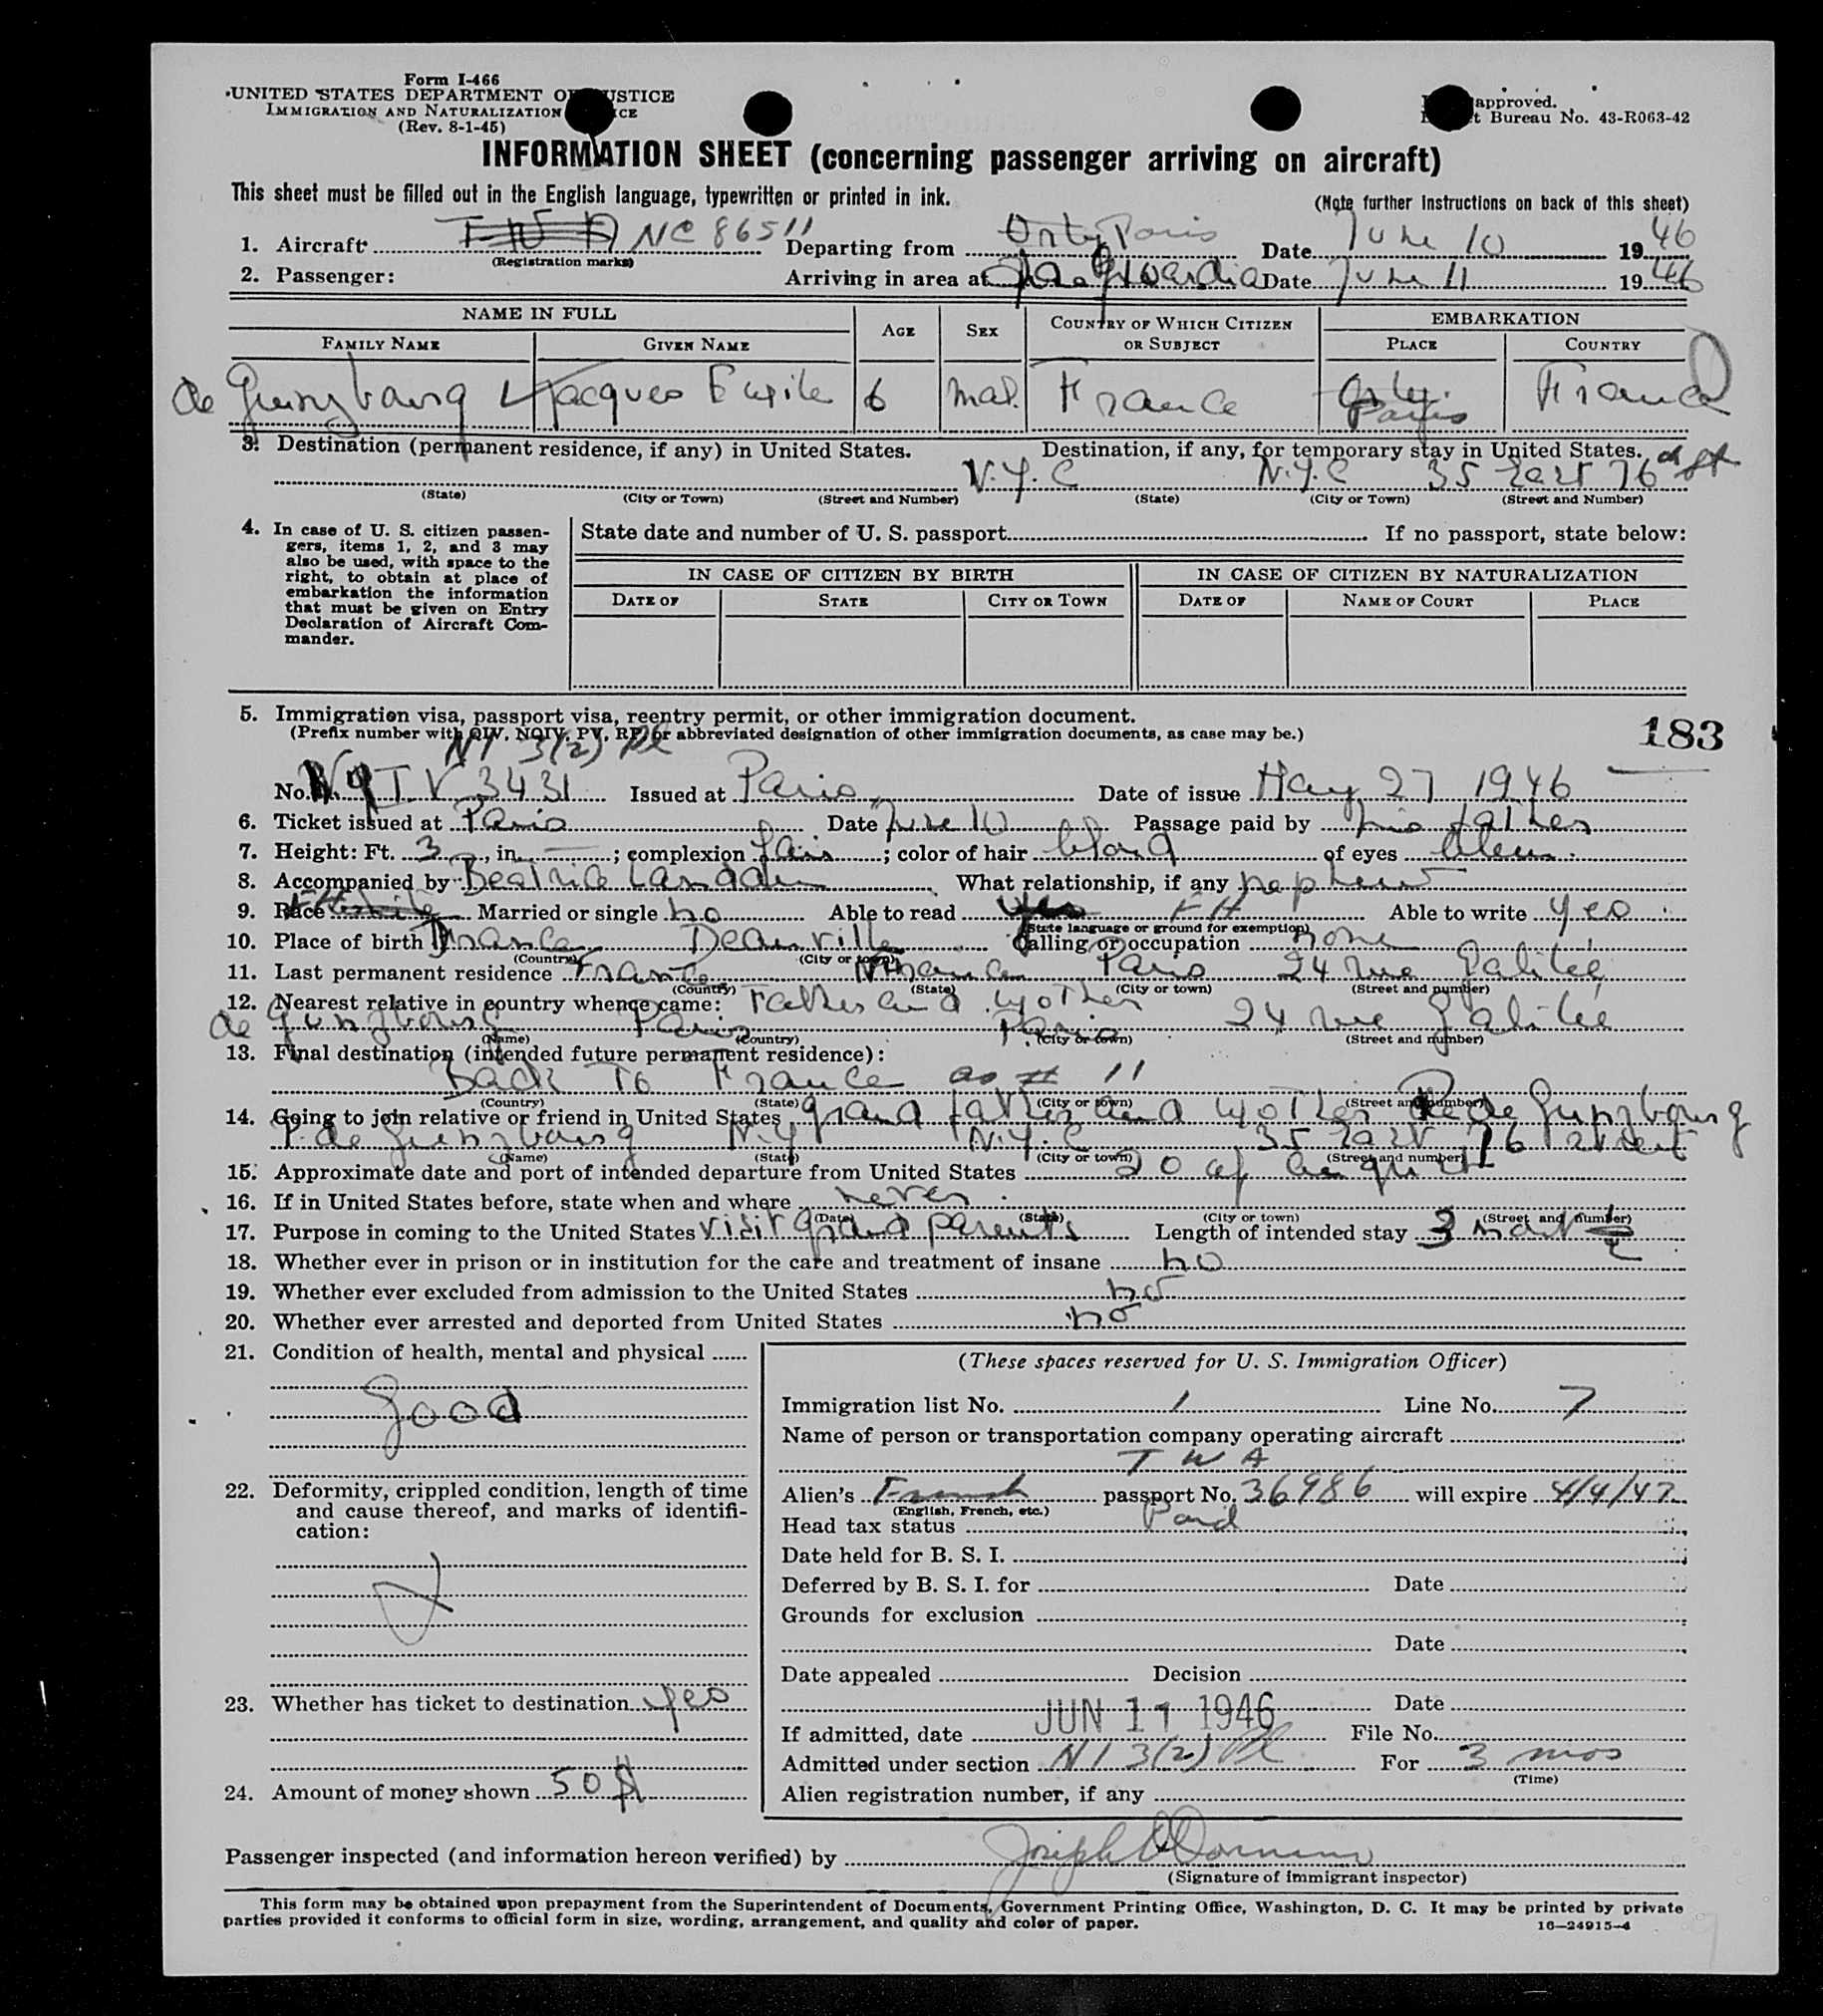 Form I-466
UNITED STATES DEPARTMENT OF JUSTICE
IMMIGRATION AND NATURALIZATION
(Rev. 8-1-45)
approved.
Bureau No. 43-R063-42
INFORMATION SHEET (concerning passenger arriving on aircraft)
This sheet must be filled out in the English language, typewritten or printed in ink.
(Note further instructions on back of this sheet)
1. Aircraft TWA NC 86511 Departing from Orly Paris Date June 10 1946
(Registration marks)
2. Passenger: Arriving in area at La Guardia Date June 11 1946
NAME IN FULL AGE SEX COUNTRY OF WHICH CITIZEN OR SUBJECT EMBARKATION
FAMILY NAME GIVEN NAME PLACE COUNTRY
de Gunzbourg Jacques Emile 6 mal. France Orly Paris France
3. Destination (permanent residence, if any) in United States. Destination, if any, for temporary stay in United States.
N.Y.C N.Y.C 35 East 76 st
(State) (City or Town) (Street and Number) (State) (City or Town) (Street and Number)
4. In case of U. S. citizen passengers, items 1, 2, and 3 may also be used, with space to the right, to obtain at place of embarkation the information that must be given on Entry Declaration of Aircraft Commander.
State date and number of U. S. passport If no passport, state below:
IN CASE OF CITIZEN BY BIRTH IN CASE OF CITIZEN BY NATURALIZATION
DATE OF STATE CITY OR TOWN DATE OF NAME OF COURT PLACE
5. Immigration visa, passport visa, reentry permit, or other immigration document.
(Prefix number with QIV, NQIV, PV, RP, or abbreviated designation of other immigration documents, as case may be.)
183
NI 3(2) Pl
No. NQIV 3431 Issued at Paris Date of issue May 27 1946
6. Ticket issued at Paris Date June 10 Passage paid by his father
7. Height: Ft. 3, in. —; complexion fair; color of hair blond of eyes bleu
8. Accompanied by Beatrice What relationship, if any nephew
9. Race Married or single no Able to read yes FH Able to write yes
(State language or ground for exemption)
10. Place of birth France Deauville Calling or occupation none
(Country) (City or town)
11. Last permanent residence France France Paris 24 rue Galilée
(Country) (State) (City or town) (Street and number)
12. Nearest relative in country whence came: Father and Mother
de Gunzbourg Paris Paris 24 rue Galilée
(Name) (Country) (City or town) (Street and number)
13. Final destination (intended future permanent residence):
Back To France as # 11
(Country) (State) (City or town) (Street and number)
14. Going to join relative or friend in United States grand father and Mother P. de Gunzbourg
P. de Gunzbourg N.Y N.Y.C 35 East 76 street
(Name) (State) (City or town) (Street and number)
15. Approximate date and port of intended departure from United States 20 of
16. If in United States before, state when and where never
(Date) (State) (City or town) (Street and number)
17. Purpose in coming to the United States visit grand parents Length of intended stay 3
18. Whether ever in prison or in institution for the care and treatment of insane no
19. Whether ever excluded from admission to the United States no
20. Whether ever arrested and deported from United States no
21. Condition of health, mental and physical
good
22. Deformity, crippled condition, length of time and cause thereof, and marks of identification:
23. Whether has ticket to destination yes
24. Amount of money shown 50 $
(These spaces reserved for U. S. Immigration Officer)
Immigration list No. 1 Line No. 7
Name of person or transportation company operating aircraft
T W A
Alien's French passport No. 36986 will expire 4/4/47
(English, French, etc.)
Head tax status Paid
Date held for B. S. I.
Deferred by B. S. I. for Date
Grounds for exclusion
Date
Date appealed Decision
Date
If admitted, date JUN 11 1946 File No.
Admitted under section NI 3(2) Pl For 3 mos
(Time)
Alien registration number, if any
Passenger inspected (and information hereon verified) by Joseph
(Signature of immigrant inspector)
This form may be obtained upon prepayment from the Superintendent of Documents, Government Printing Office, Washington, D. C. It may be printed by private
parties provided it conforms to official form in size, wording, arrangement, and quality and color of paper. 16—24915-4